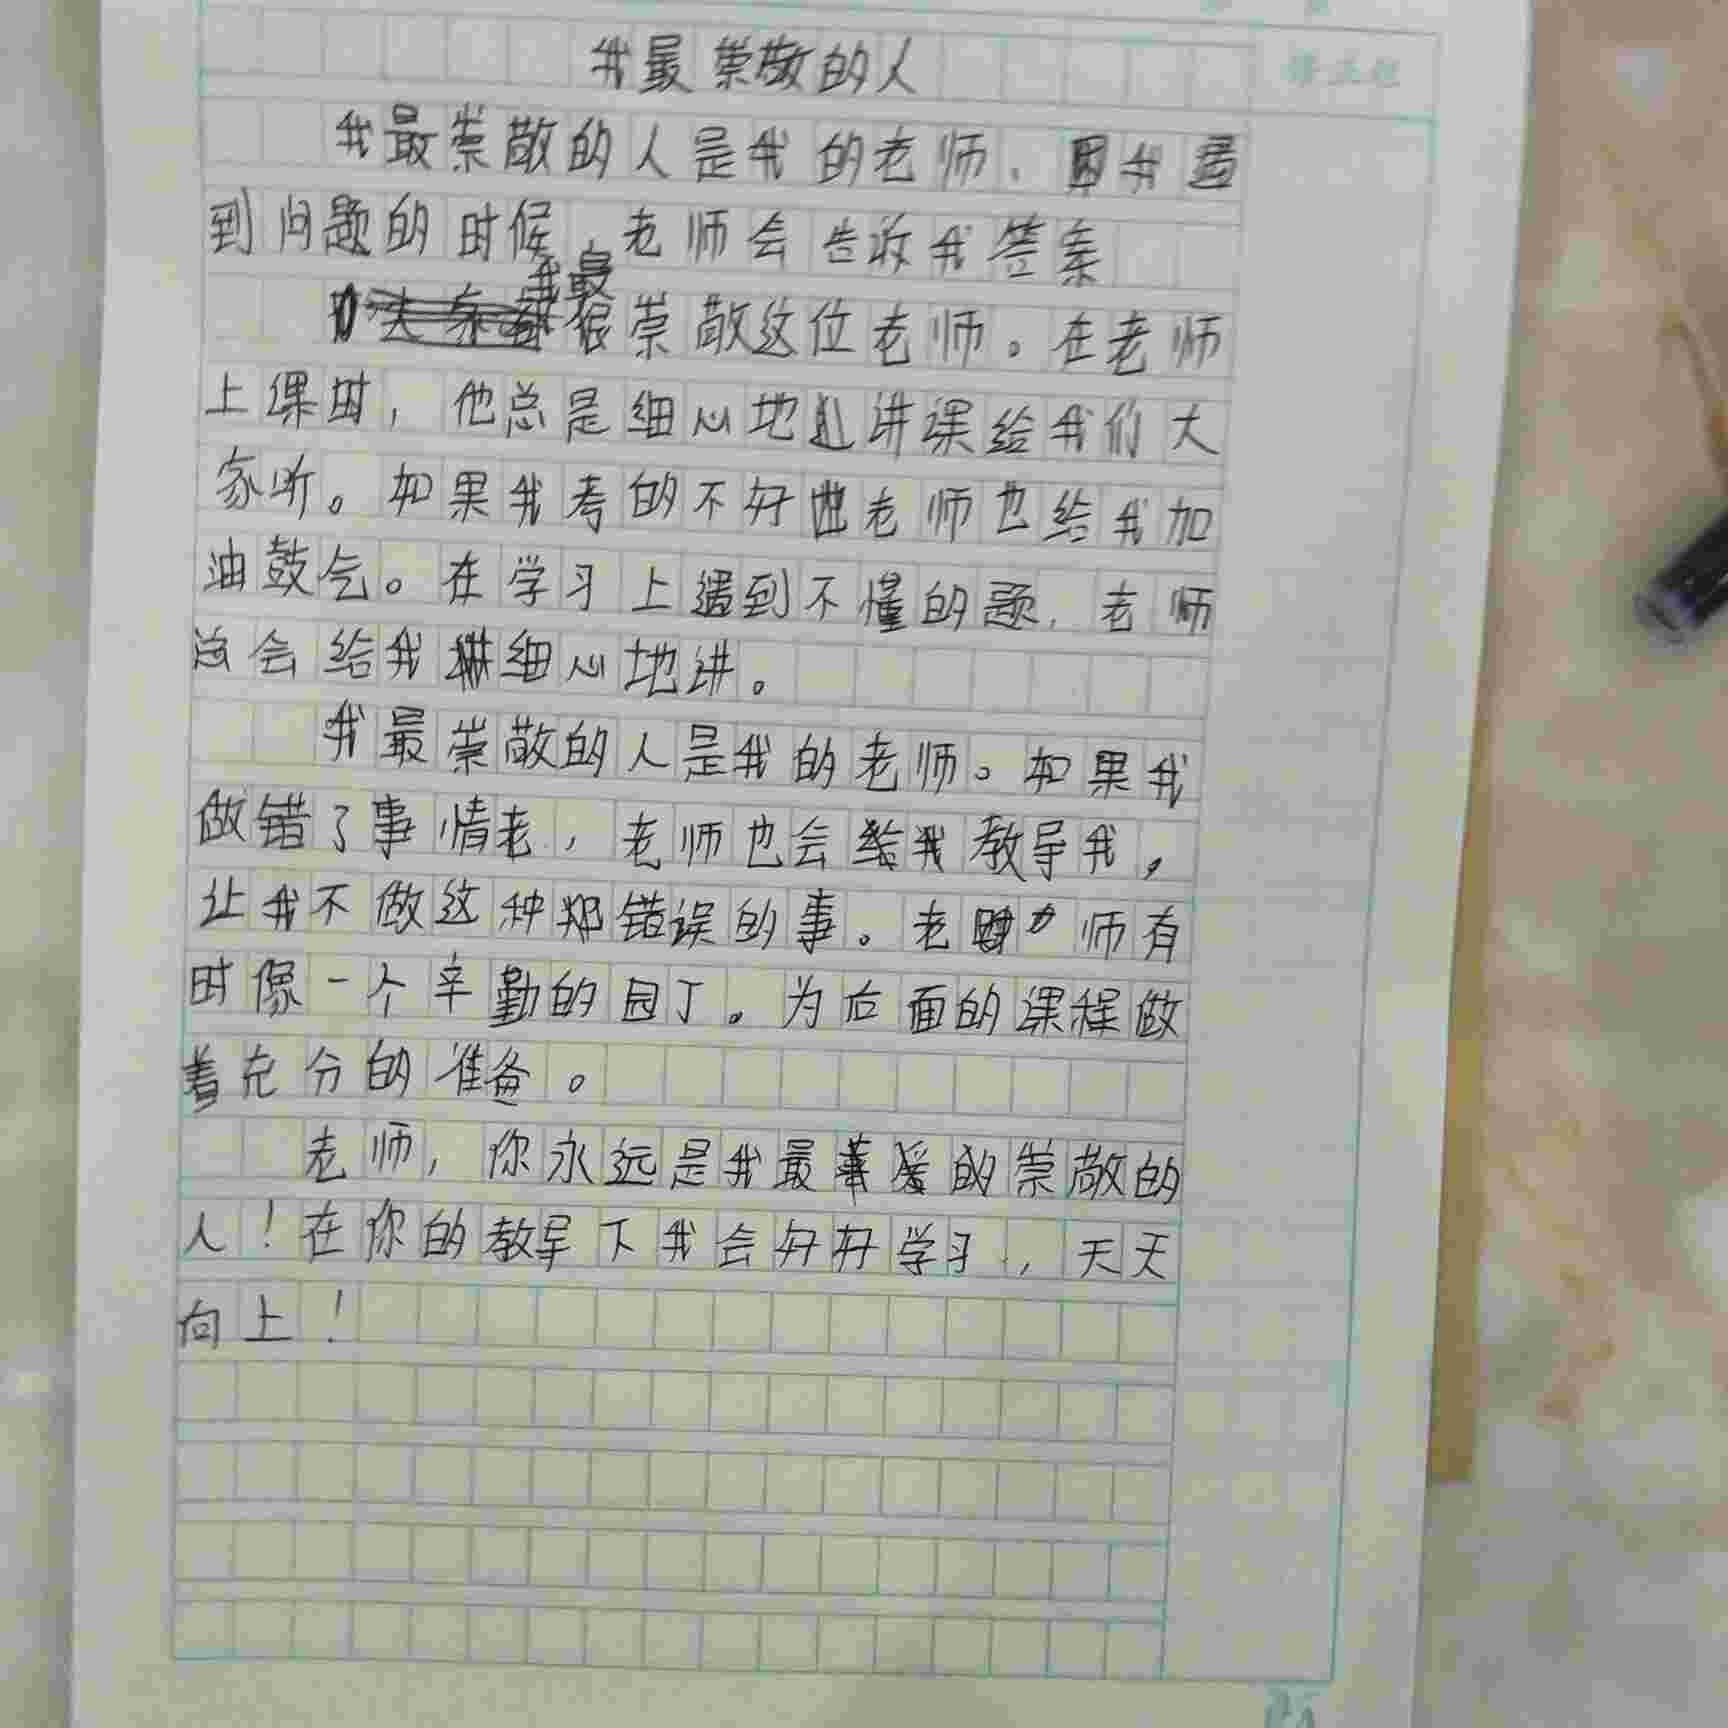 我最崇敬的人
我最崇敬的人是我的老师、因我遇
到问题的时候，老师会告诉我答案
我最
很崇敬这位老师。在老师
上课时，他总是细心地讲课给我们大
家听。如果我考的不好老师也给我加
油鼓气。在学习上遇到不懂的题，老师
总会给我细心地讲。
我最崇敬的人是我的老师。如果我
做错了事情老，老师也会教导我，
让我不做这种犯错误的事。老师有
时像一个辛勤的园丁。为后面的课程做
着充分的准备。
老师，你永远是我最崇敬的
人！在你的教导下我会好好学习，天天
向上！